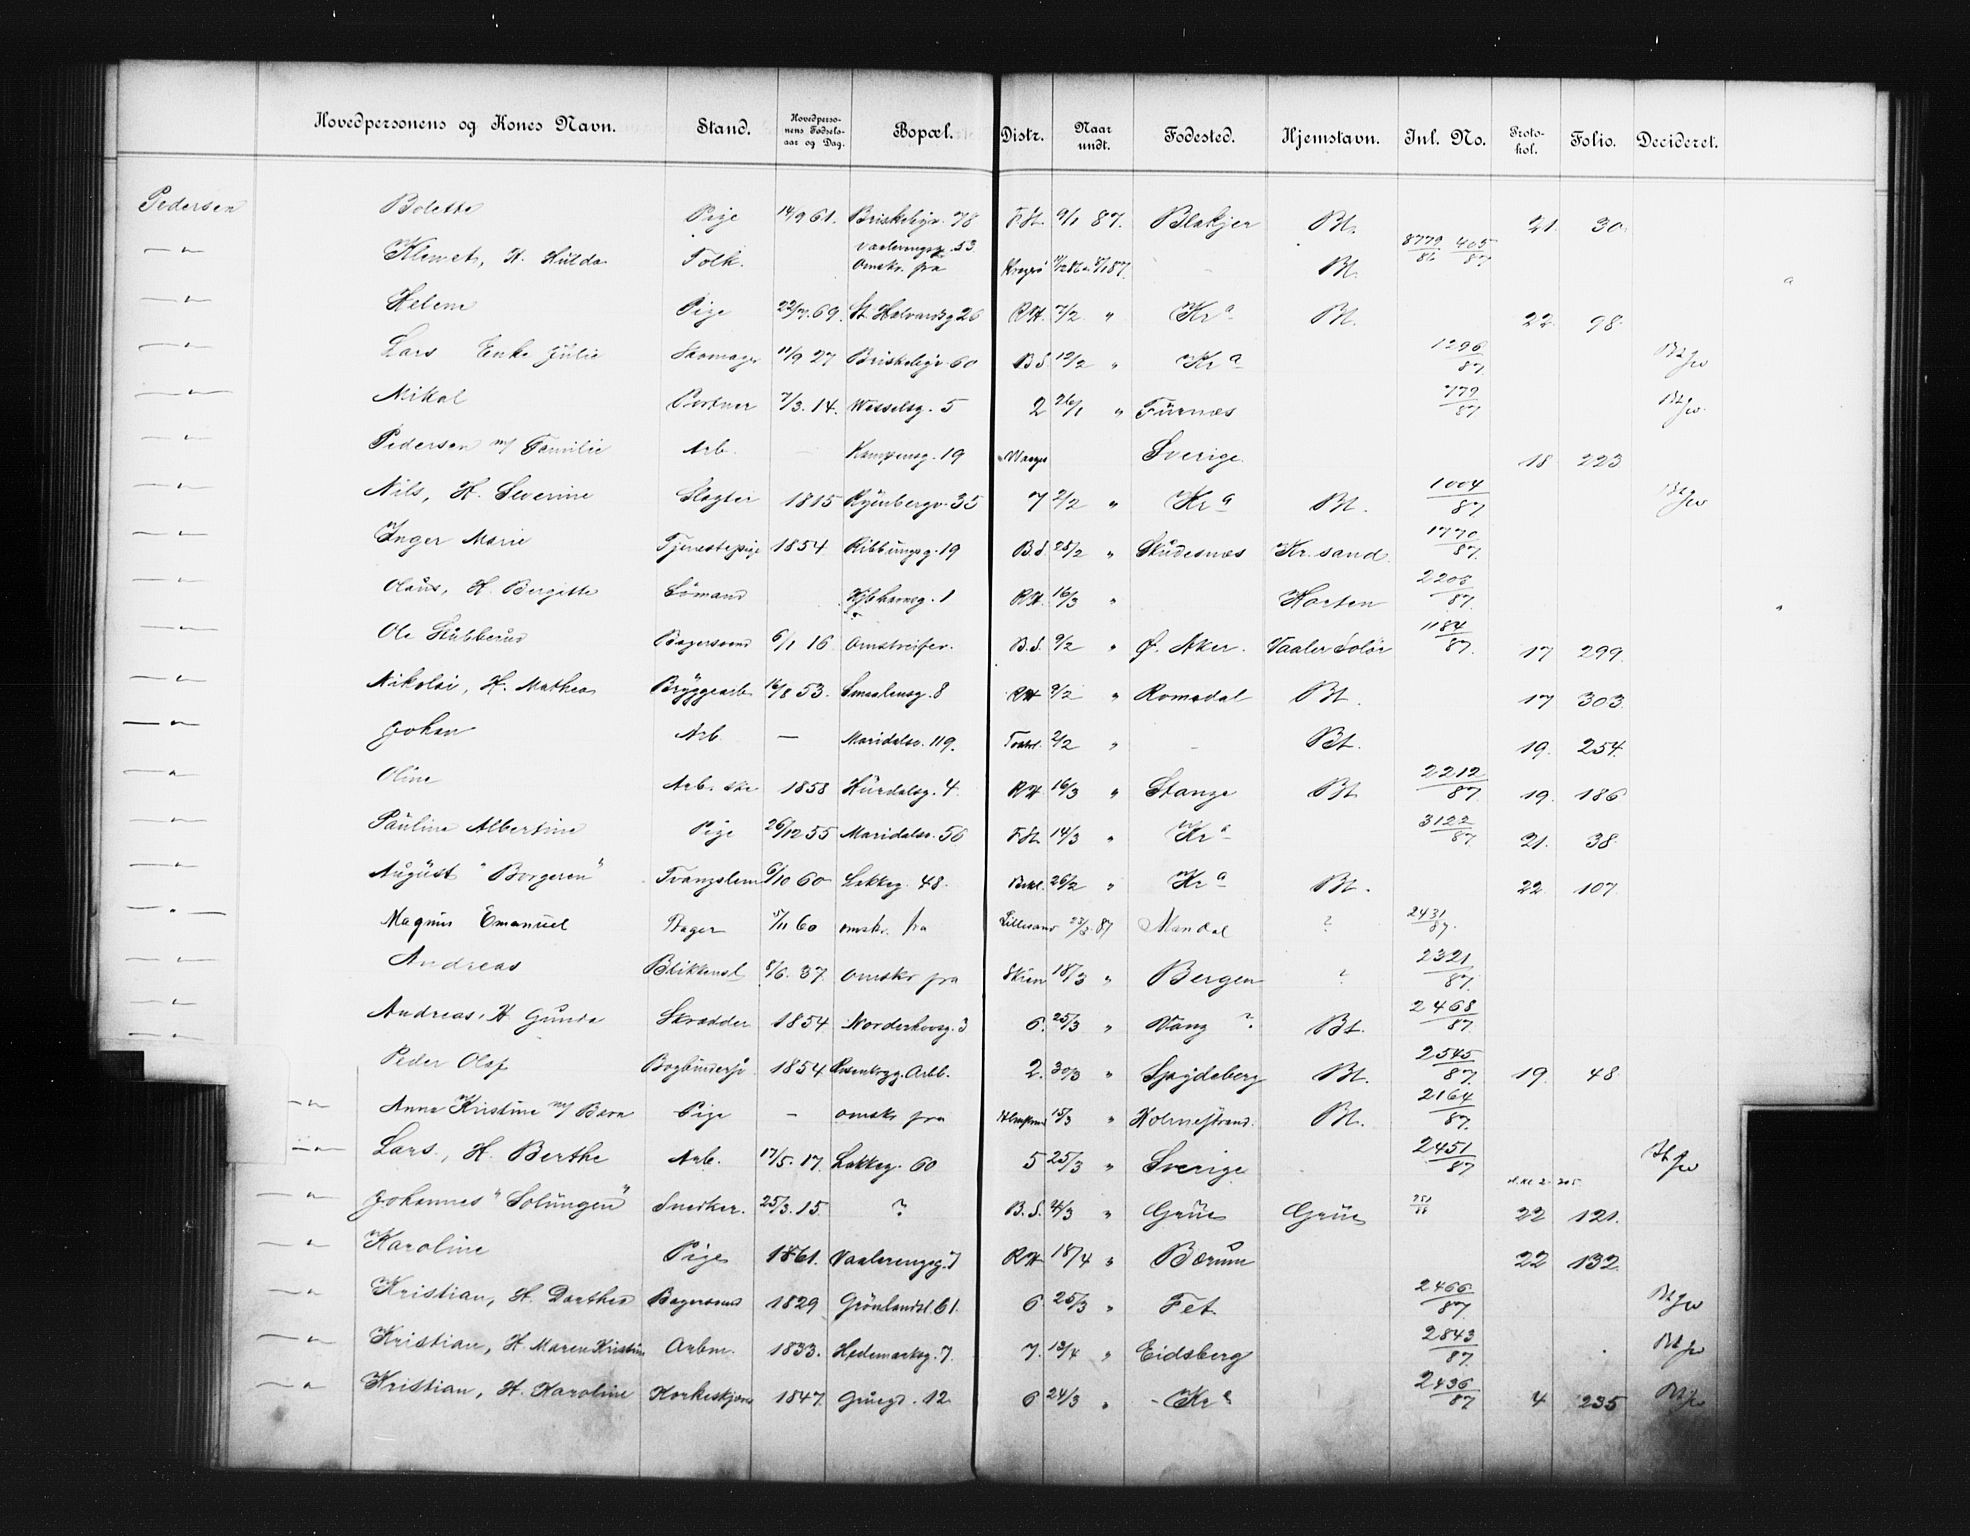 Hovedpersonens og Kones Navn. Stand. Hovedpersonens Fødselsaar og Dag. Bopæl. Distr. Naar undt. Fødested. Hjemstavn. Inl. No. Protokol. Folio. Decideret.
Pedersen Bolette Pige 14/9 61. Briskebyv. 78 F.St. 9/1 87. Blakjer Bt. 21. 30.
—"— Klemet, H. Hulda Folk. Vaalerengsg. 53 Omskr. fra Kragerø Bt. 8779/86 405/87
—"— Helene Pige 22/7. 69. St. Halvardsg 26 RH. 7/2 " Kr.a Bt. 22. 98.
—"— Lars Enke Julie Skomager 11/9 27 Briskebyv 60 B.d. 12/2 " Kr a 1296/87
—"— Mikal Portner 7/3. 14. Wesselsg. 5 2 26/1 " Furnæs 779/87
—"— Pedersen m/ Familie Arb. — Kampensg. 19 Sverige. 18 223
—"— Nils, H. Severine Slagter 1815 Ryenbergv. 35 7 2/2 " Kr a Bt. 1004/87
—"— Inger Marie Tjenestepige 1854 Ribbungsg. 19 B.d. 25/2 " Skudesnæs Kr. sand. 1770/87.
—"— Olaus, H. Bergitte Sømand Kjbhavnsg. 1 RH. 16/3 " Horten /87.
—"— Ole Stubberud Bagersvend 6/1 16 Omstreifer. B.d. 9/2 " Ø. Aker. Vaaler Solør 1184/87. 17 299.
—"— Nikolai, H. Mathea Bryggearb 16/8 53. Smaalensg. 8 RH 9/2 " Romsdal Bt. 17 303.
—"— Johan Arb. — Maridalsv. 119. 2/2 " - Bt. 19. 254.
—"— Oline Arb. ske 1858 Hurdalsg. 4. RH. 16/3 " Stange Bt 2212/87. 19. 186
—"— Pauline Albertine Pige 26/12 55 Maridalsv. 56 F.St. 14/3 " Kr a 3122/87. 21. 38.
—"— August "Borgeren" Tvangslem 6/10 60 Lakkeg. 48. 26/2 " Kr a Bt. 22. 107.
—"— Magnus Emanuel Bager 5/11 60 omskr. fra Lillesand 23/3. 87 Mandal ? 2431/87.
—"— Andreas Blikkensl 8/6. 37. omskr fra Skien 18/3 " Bergen ? 2321/87.
—"— Andreas, H Gunda Skrædder 1854 Norderhovsg. 3 6. 25/3 " Vang ? Bt. 2468/87.
—"— Peder Olaf 1854 Rosenkrgg. Arbb. 2. 30/3 " Spydeberg Bt. 2545/87. 19. 48.
—"— Anna Kristine m/ Barn Pige - omskr fra 15/3 " Holmestrand. Bt. 2164/87.
—"— Lars, H. Berthe Arb. 17/5. 17. Lakkeg. 60 5 25/3 " Sverige 2451/87
—"— Johannes "Solungen" Snedker. 25/3. 15. ? B.d. " Grue Grue 22 121.
—"— Karoline Pige 1861. Vaalerengsg. 7 RH 18/4 " Bærum 22 132.
—"— Kristian, H. Dorthea Bagersvend 1829 Grønlandsl. 61. 6 25/3 " Fet. 2466/87.
—"— Kristian, H. Maren Kristine Arbm. 1833. Hedemarksg. 7. 7. 12/4 " Eidsberg 2843/87.
—"— Kristian, H. Karoline 1847. Gruegd. 12 6 24/3 " Kr a 2436/87 4 235